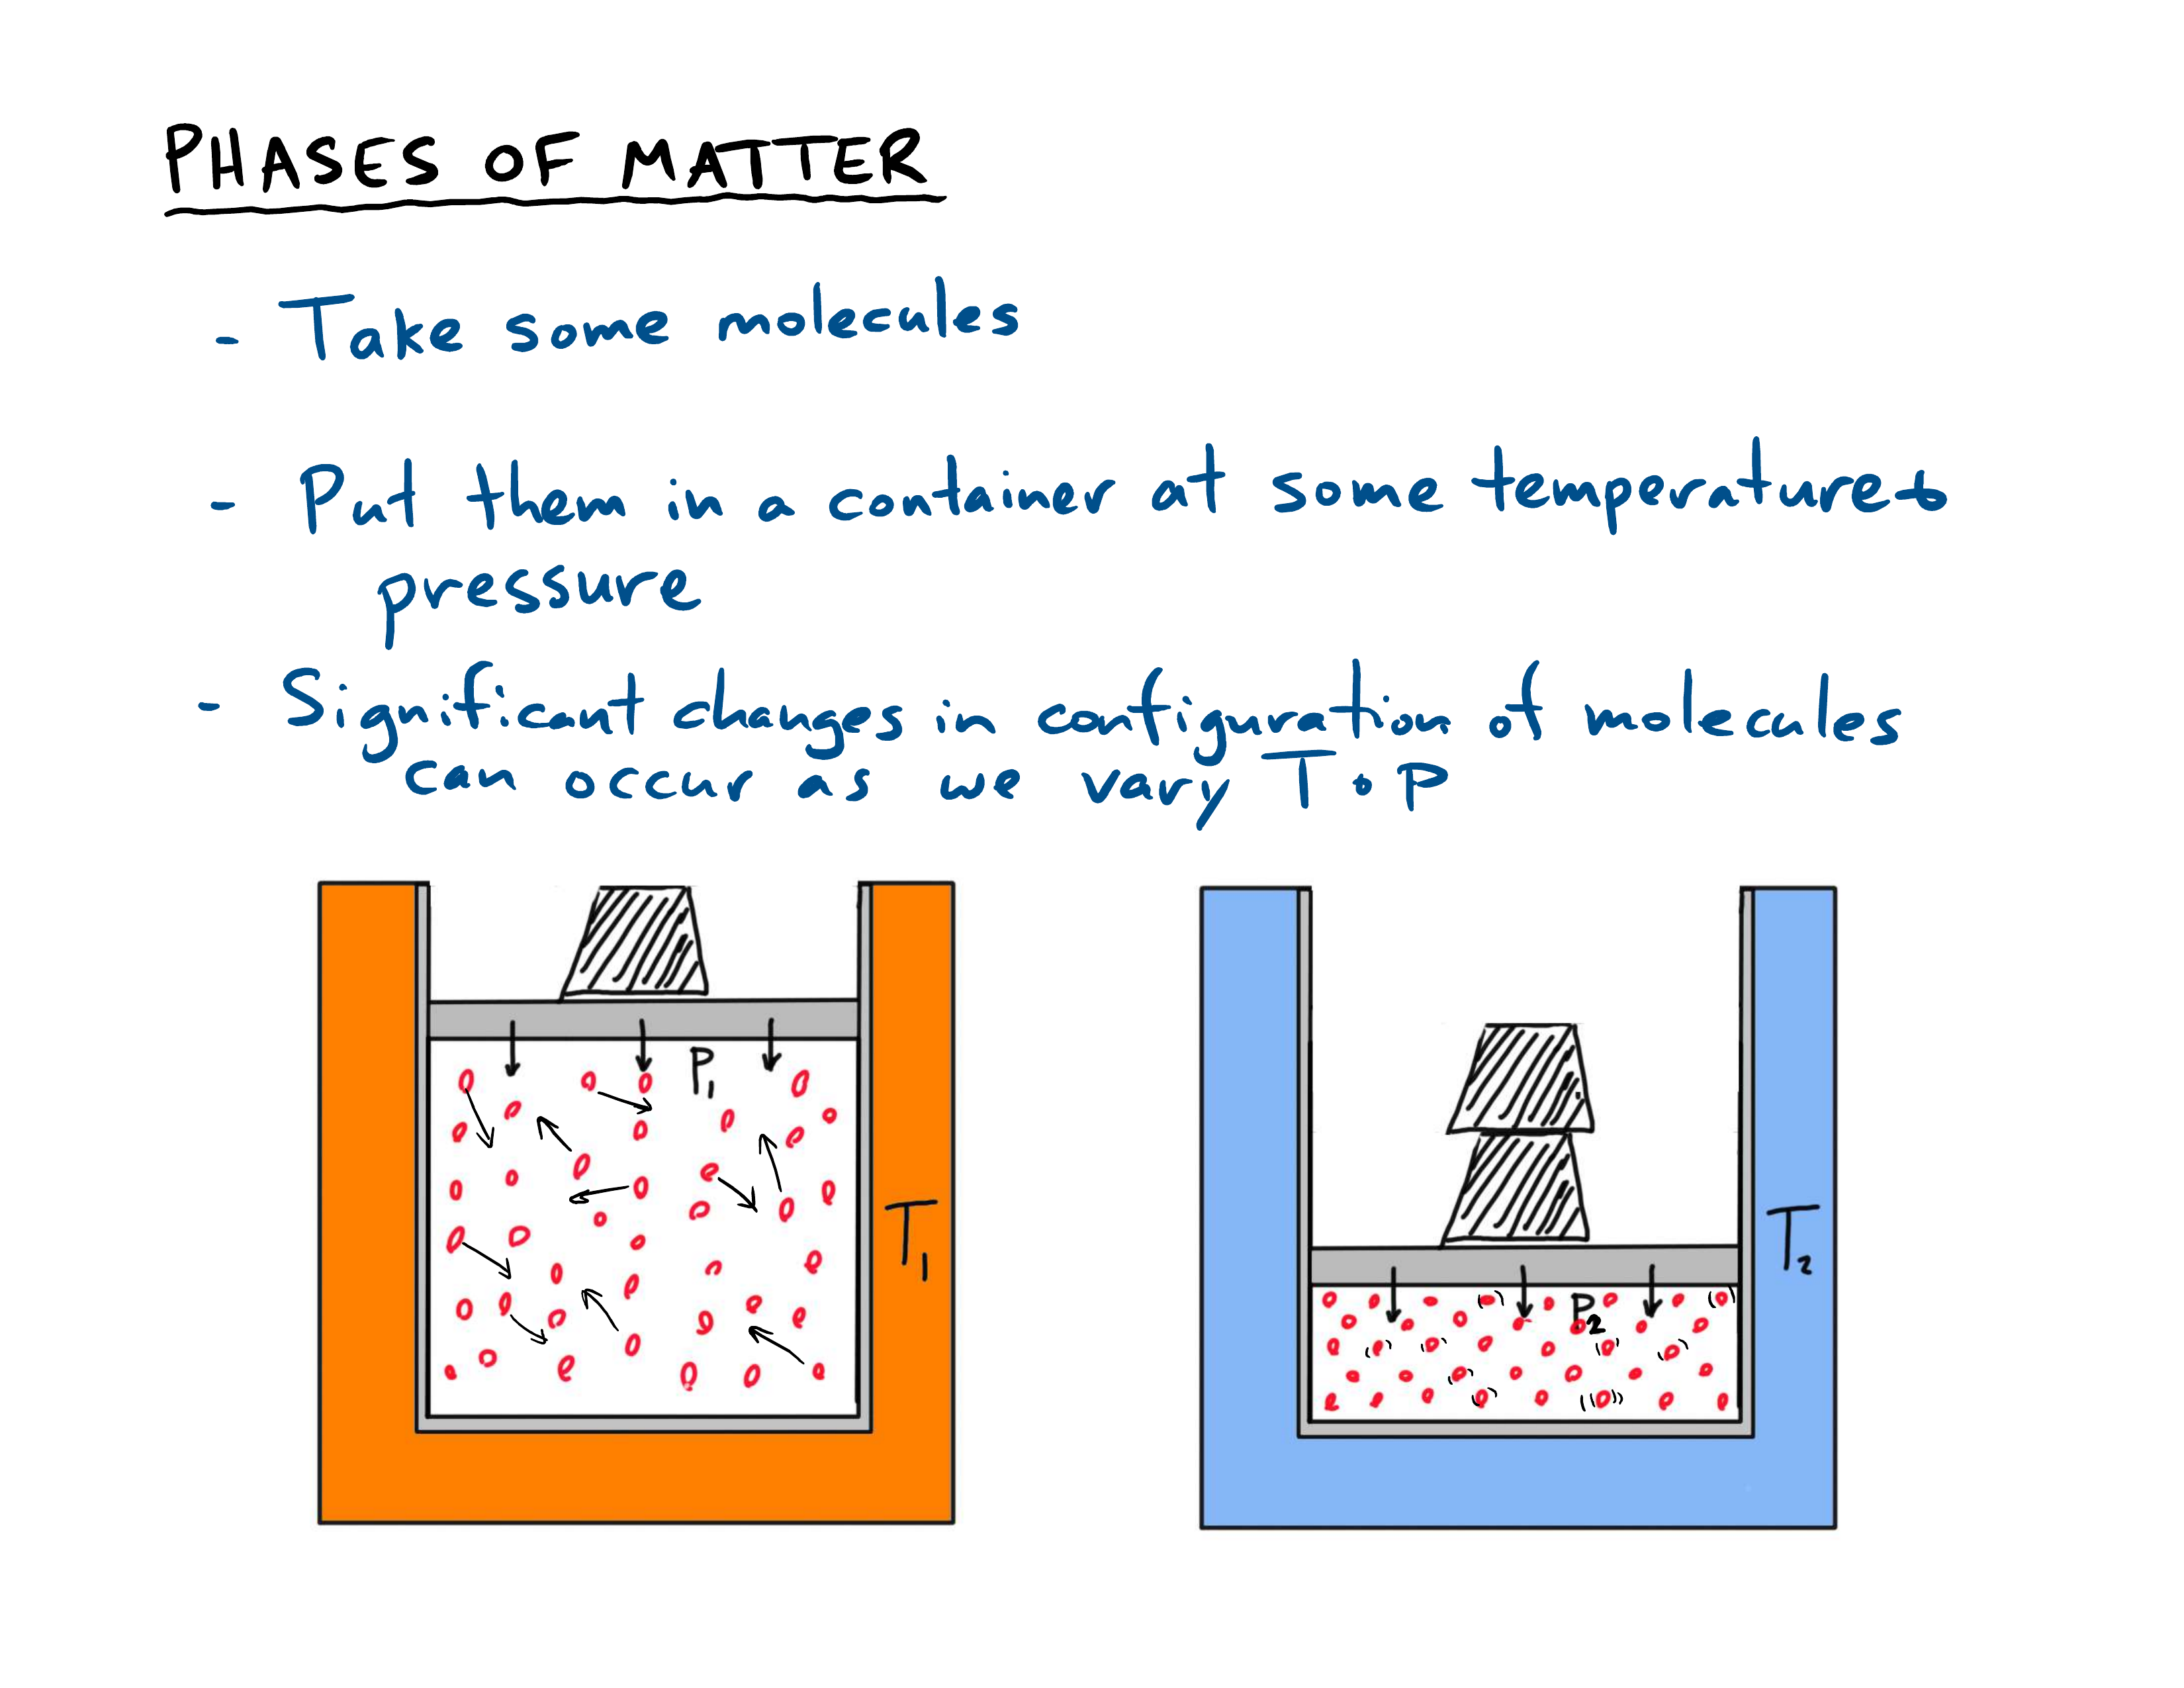 PHASES OF MATTER
- Take some molecules
- Put them in a container at some temperature +
pressure
- Significant changes in configuration of molecules
can occur as we vary T o P
P₁
T₁
T₂
P₂